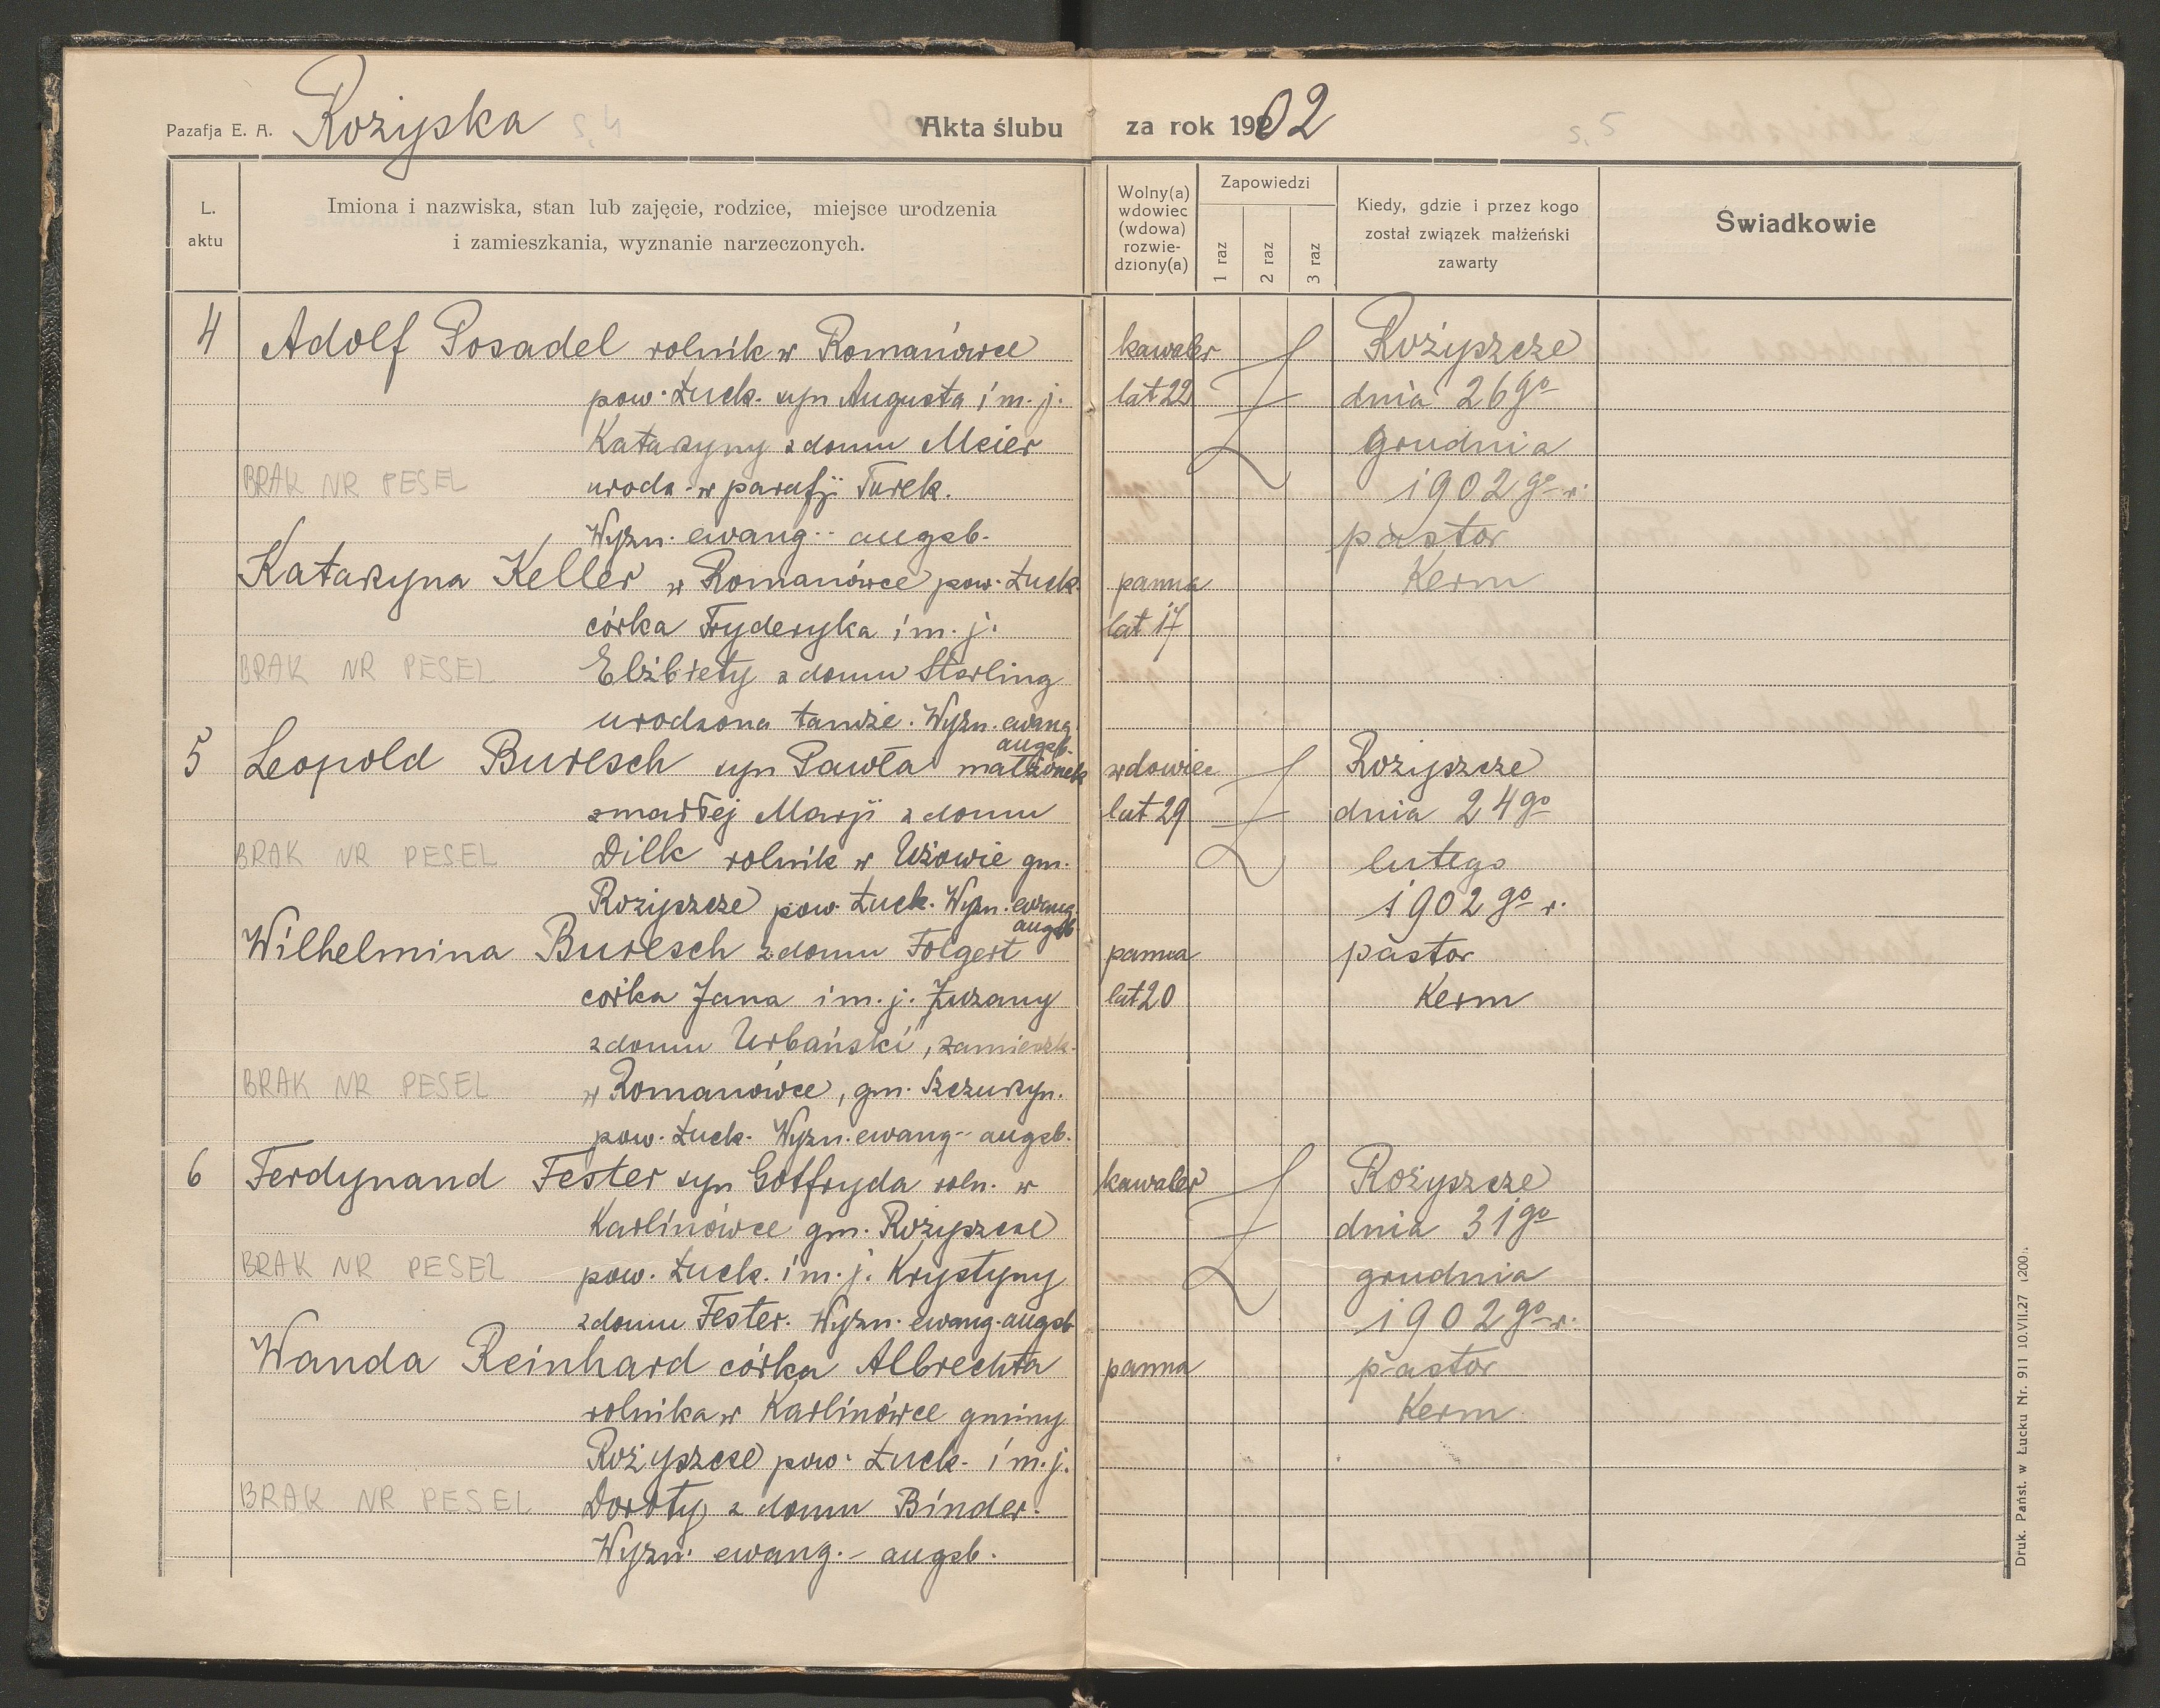 Pazafja E. A. Rożyska
Akta ślubu za rok 1902
L. aktu
Imiona i nazwiska, stan lub zajęcie, rodzice, miejsce urodzenia
i zamieszkania, wyznanie narzeczonych.
Wolny(a)
wdowiec
(wdowa)
rozwie-
dziony(a)
Zapowiedzi
1 raz
2 raz
3 raz
Kiedy, gdzie i przez kogo
został związek małżeński
zawarty
Świadkowie
4 Adolf Posadel rolnik w Romanówce
pow. Łuck. syn Augusta i m. j.
Katarzyny z domu Meier
BRAK NR PESEL urodz. w parafji Turek.
Wyzn. ewang.- augsb.
kawaler
lat 22
Rożyszcze
dnia 26go
grudnia
1902go r.
pastor
Kerm
Katarzyna Keller w Romanówce pow. Łuck.
córka Fryderyka i m. j.
BRAK NR PESEL Elżbiety z domu Sterling
urodzona tamże. Wyzn. ewang.
augsb.
panna
lat 17
5 Leopold Buresch syn Pawła małżonek
zmarłej Marji z domu
BRAK NR PESEL Dilk rolnik w Użowie gm.
Rożyszcze pow. Łuck. Wyzn. ewang.
augsb.
wdowiec
lat 29
Rożyszcze
dnia 24go
lutego
1902go r.
pastor
Kerm
Wilhelmina Buresch z domu Folgert
corka Jana i m. j. Zuzany
z domu Urbański, zamieszk.
BRAK NR PESEL w Romanówce, gm. Szczurzyn.
pow. Łuck. Wyzn. ewang.- augsb.
panna
lat 20
6 Ferdynand Fester syn Gotfryda roln. w
Karlinówce gm. Rożyszcze
BRAK NR PESEL pow. Łuck. i m. j. Krystyny
z domu Fester. Wyzn. ewang. augsb
kawaler
Rożyszcze
dnia 31go
grudnia
1902go r.
pastor
Kerm
Wanda Reinhard córka Albrechta
rolnika w Karlinówce gminy
Rożyszcze pow. Łuck. i m. j.
BRAK NR PESEL Doroty z domu Binder.
Wyzn. ewang.- augsb.
panna
Druk. Państ. w Łucku Nr. 911 10.VII.27 (200).